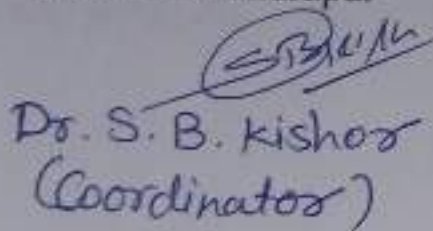 Dr. S. B. Kishor
(Coordinator)